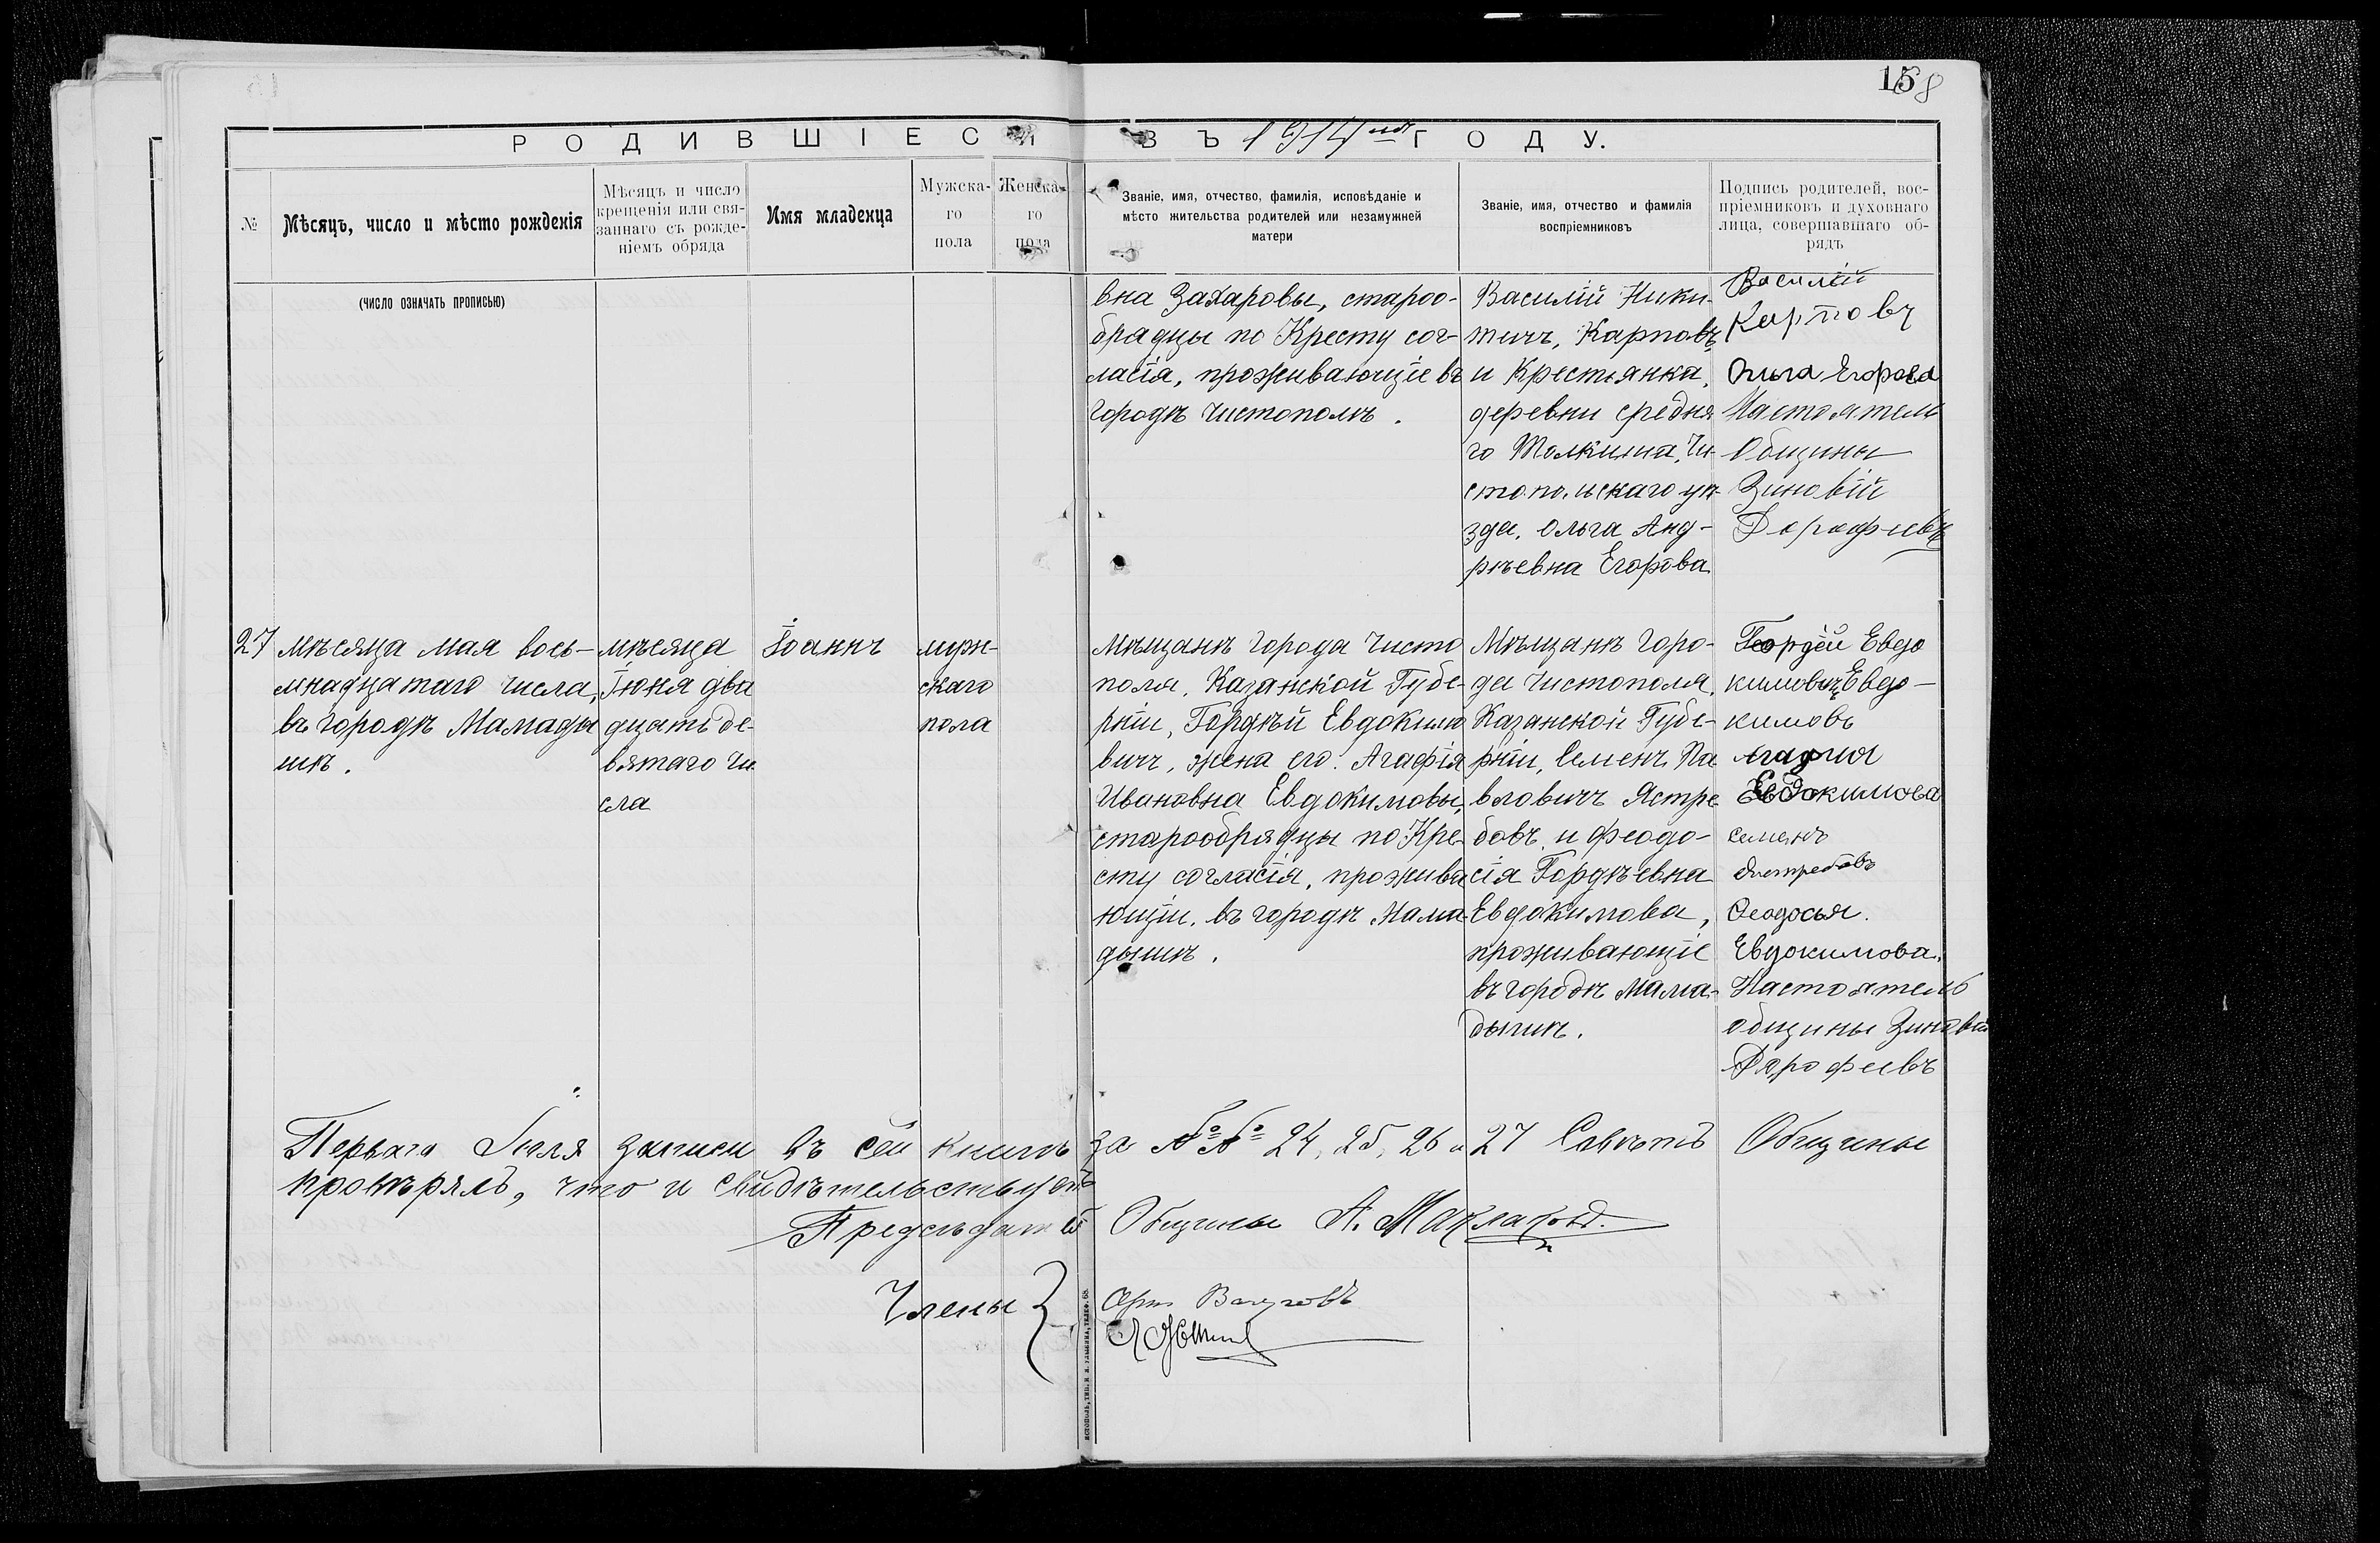 15
68
РОДИВШІЕСЯ ВЪ 1914мъ ГОДУ.
№
Мѣсяцъ, число и мѣсто рожденія
Мѣсяцъ и число
крещенія или свя-
заннаго съ рожде-
ніемъ обряда
Имя младенца
Мужска-
го
пола
Женска-
го
пола
Званіе, имя, отчество, фамилія, исповѣданіе и
мѣсто жительства родителей или незамужней
матери
Званіе, имя, отчество и фамилія
воспріемниковъ
Подпись родителей, вос-
пріемниковъ и духовнаго
лица, совершавшаго об-
рядъ
(ЧИСЛО ОЗНАЧАТЬ ПРОПИСЬЮ)
вна Захаровы, староо-
брядцы по Кресту сог-
ласія, проживающіе въ
городѣ Чистополѣ.
Василій Ники-
тичъ, Карповъ
и Крестьянка,
деревни средня
го Толкиша, Чи-
стопольскаго уѣ-
зда, Ольга Анд-
рѣевна Егорова
Василій
Карповъ
Ольга Егорова
Настоятель
Общины
Зиновій
Дорофеевъ
27
мѣсяца мая вось-
мнадцатаго числа,
въ городѣ Мамады
шѣ.
мѣсяца
Іюня два
дцать де-
вятаго чи
сла
Іоаннъ
муж-
скаго
пола
Мѣщанѣ города Чисто
поля, Казанской Губе-
рніи, Гордѣй Евдокимо
вичъ, жена его. Агафія
Ивановна Евдокимовы,
старообрядцы по Кре-
сту согласія, прожива
ющіи, въ городѣ Мама-
дышѣ.
Мѣщанѣ Горо-
да Чистополя,
Казанской Губе-
рніи, Семенъ Па
вловичъ Ястре
бовъ, и Феодо-
сія Гордѣевна
Евдокимова,
проживающіе
въ городѣ Мама-
дышѣ.
Гордей Евдо
кимовичъ Евдо-
кимовъ
Агафия
Евдокимова
Семенъ
Ястребовъ
Феодосья.
Евдокимова.
Настоятель
общины Зиновій
Дарофеевъ
Перваго Іюля записи въ сей книгѣ за №№ 24, 25, 26 и 27 Совѣтъ Общины
провѣрялъ, что и свидѣтельствуетъ
Председатель Общины А. Маклаковъ.
Члены